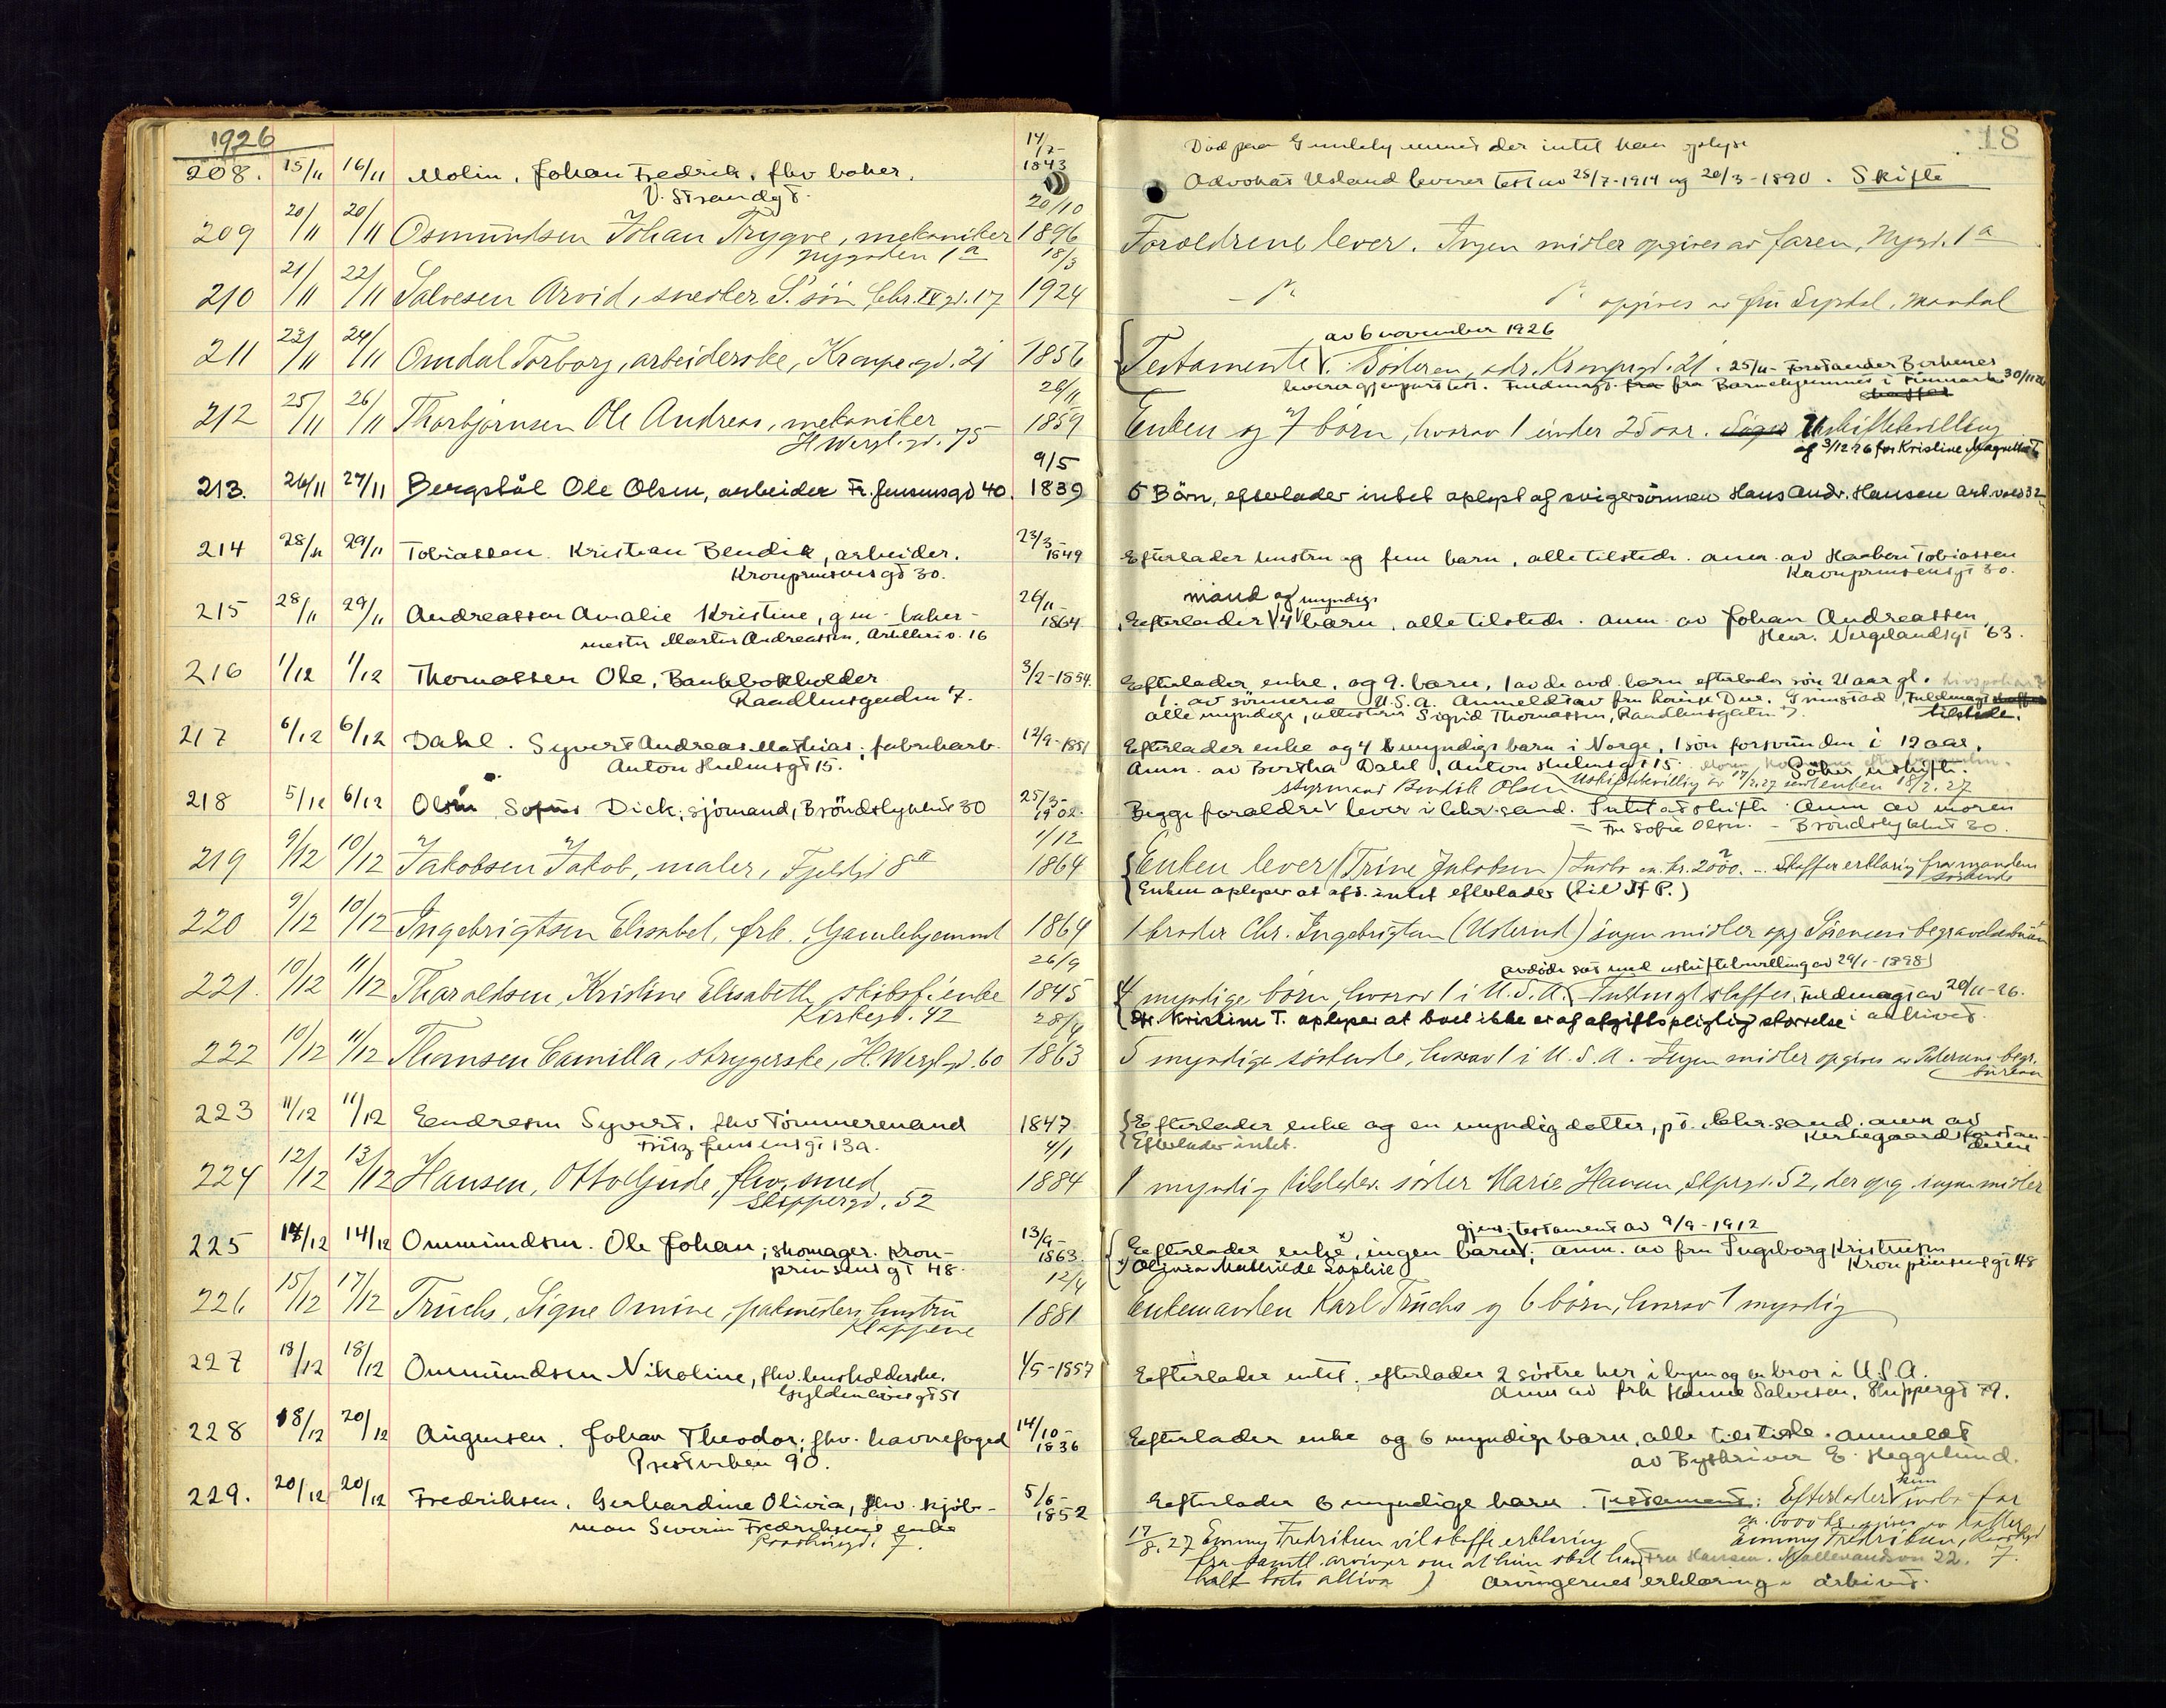 1926
18
208. 15/11 16/11 Molin, Johan Fredrik, fhv baker. 14/7- 1843
V. Strandgt.
Död paa Gamlehjemmet der intet kan oplyse
Advokat Usland leverer test av 25/7-1914 og 20/3-1890. Skifte
209 20/11 20/11 Osmundsen Johan Trygve, mekaniker 20/10 1896
Nygaden 1a
Forældrene lever. Ingen midler opgives av faren, Nygd. 1a
210 21/11 22/11 Salvesen Arvid, snedker S. sön Chr. IV gd. 17 18/3 1924
opgives av fru Mandal
211 23/11 24/11 Omdal Torborg, arbeiderske, Kronpr.gd. 21 1856
av 6 november 1926
Testamente. Søsteren, adr. Kronprgd. 21. 25/11 Forstander Birkenes
leverer gjenpart test. Fuldmagt fra Barnehjemmet i Finmark 30/11 26
212 25/11 26/11 Thorbjørnsen Ole Andreas, mekaniker 20/11 1859
H. Wergl. gd. 75
Enken og 7 börn, hvorav 1 under 25 aar. Uskiftebevilling
af 3/12 26 for Kristine Magnetha T
213. 26/11 27/11 Bergstöl Ole Olsen, arbeider Fr. Jensensgd 40. 9/5 1839
5 Börn, efterlader intet oplyst af svigersönnen Hans Andr. Hansen Art.vold 32
214 28/11 29/11 Tobiassen. Kristian Bendik, arbeider. 23/3- 1849
Kronprinsensgt 30.
Efterlader hustru og fem barn, alle tilstede. anm. av Haakon Tobiassen
Kronprinsensgt 30.
215 28/11 29/11 Andreassen Amalie Kristine, gm- baker- 26/11- 1864
mester Martin Andreassen, Artilleriv. 16
mand og myndige
Efterlader 4 barn, alle tilstede. anm. av Johan Andreassen,
Henr. Vergelandsgt 63.
216 1/12 1/12 Thomassen Ole, Bankbokholder 3/2-1854.
Raadhusgaden 7.
Efterlader enke, og 9. barn, 1 av de avd. barn efterlader sön 21 aar gl.
1. av sönnerne U.S.A. Anmeldt av fru Louise Due, Grimstad, Fuldmagt
alle myndige, attesterer Sigrid Thomassen, Raadhusgaten 7. tilstede.
217 6/12 6/12 Dahl. Syvert Andreas Mathias; fabrikarb. 12/9-1851
Anton Heiensgt 15.
Efterlader enke og 4 myndige barn i Norge, 1 sön forsvunden i 12 aar,
Anm. av Bertha Dahl, Anton Heiensgt 15. Söker uskifte.
Uskiftebevilling av 17/2.27 sendt enken 18/2.27
218 5/12 6/12 Olsen Dick; sjömand, Bröndslyktens 30 25/3- 1902.
styrmand Bendik Olsen
Begge foreldre lever i Chr.sand. Intet at skifte. Anm av moren
Fru Sofie Olsen.
219 9/12 10/12 Jakobsen Jakob, maler, Fjeldgd 8 II 1/12 1864
Enken lever (Trine Jakobsen) Indbo ca. kr. 2000. - Skaffer erklæring fra mandens
söskende
Enken oplyser at afd. intet efterlader
220 9/12 10/12 Ingebrigtsen Elisabet, frk. Gamlehjemmet 1864
1 broder Chr. Ingebrigtsen ingen midler opg Sörensens begravelsesbureau
221. 10/12 11/12 Tharaldsen, Kristine Elisabeth skibsf. enke 26/9 1845
Kirkegd. 42
avdöde sat med uskiftebevilling av 29/1-1898
4 myndige börn, hvorav 1 i U.S.A. Fuldmagt skaffes, Fuldmagt av 20/11-26.
Fr. Kristine T. oplyser at boet ikke er af afgiftspligtig størrelse i arkivet.
222 10/12 11/12 Thomsen Camilla, strygerske, H. Wergl. gd. 60 28/4 1863
5 myndige söskende, hvorav 1 i U.S.A. Ingen midler opgives av Petersens begr.
bureau
223 11/12 11/12 Endresen Syvert, fhv Tömmermand 1847
Fritz Jensensgt 13a.
Efterlader enke og en myndig datter, pt. Chr.sand. anm av
Kirkegaardsforstan-
deren
Efterlader intet.
224 12/12 13/12 Hansen, Otto Gjude, fhv. smed 4/1 1884
Skippergd. 52
1 myndig tilstedev. söster Marie Hansen, Skprgd. 52, der opg. ingen midler
225 14/12 14/12 Ommundsen. Ole Johan; skomager. Kron- 13/9- 1863
prinsensgt 48.
gjens. testament av 9/9-1912
Efterlader enke x), ingen barn; anm. av fru Ingeborg Kristensen
x) Olivia Mathilde Sophie Kronprinsensgt 48
226 15/12 17/12 Truchs, Signe Omine, pakmesters hustru 12/4 1881
Kloppene
Enkemanden Karl Truchs og 6 börn, hvorav 1 myndig
227 18/12 18/12 Ommundsen Nikoline, fhv. husholderske. 1/5-1857
Gyldenlövesgt 51
Efterlader intet. efterlader 2 söstre her i byen og en bror i U.S.A.
Anm av frk Hanne Salvesen, Skippergt 79.
228 18/12 20/12 Augensen. Johan Theodor; fhv. havnefoged 14/10- 1836
Prestviken 90.
Efterlader enke og 6 myndige barn, alle tilstede. anmeldt
av Byskriver E. Heggelund.
229. 20/12 20/12 Fredriksen, Gerhardine Olivia, fhv. kjöb- 5/6- 1852
man Severin Fredriksens enke
Raadhusgd. 7.
Efterlader 6 myndige barn. Testament: Efterlader kun indbo for
ca. 6000 kr. opgives av datter
Emmy Fredriksen, Raadhusgd 7.
17/8.27 Emmy Fredriksen vil skaffe erklæring
fra samtl. arvinger om at hun skal ha
halt boets aktiva Fru Hansen. Møllevandsv 22.
arvingernes erklæring i arkivet.